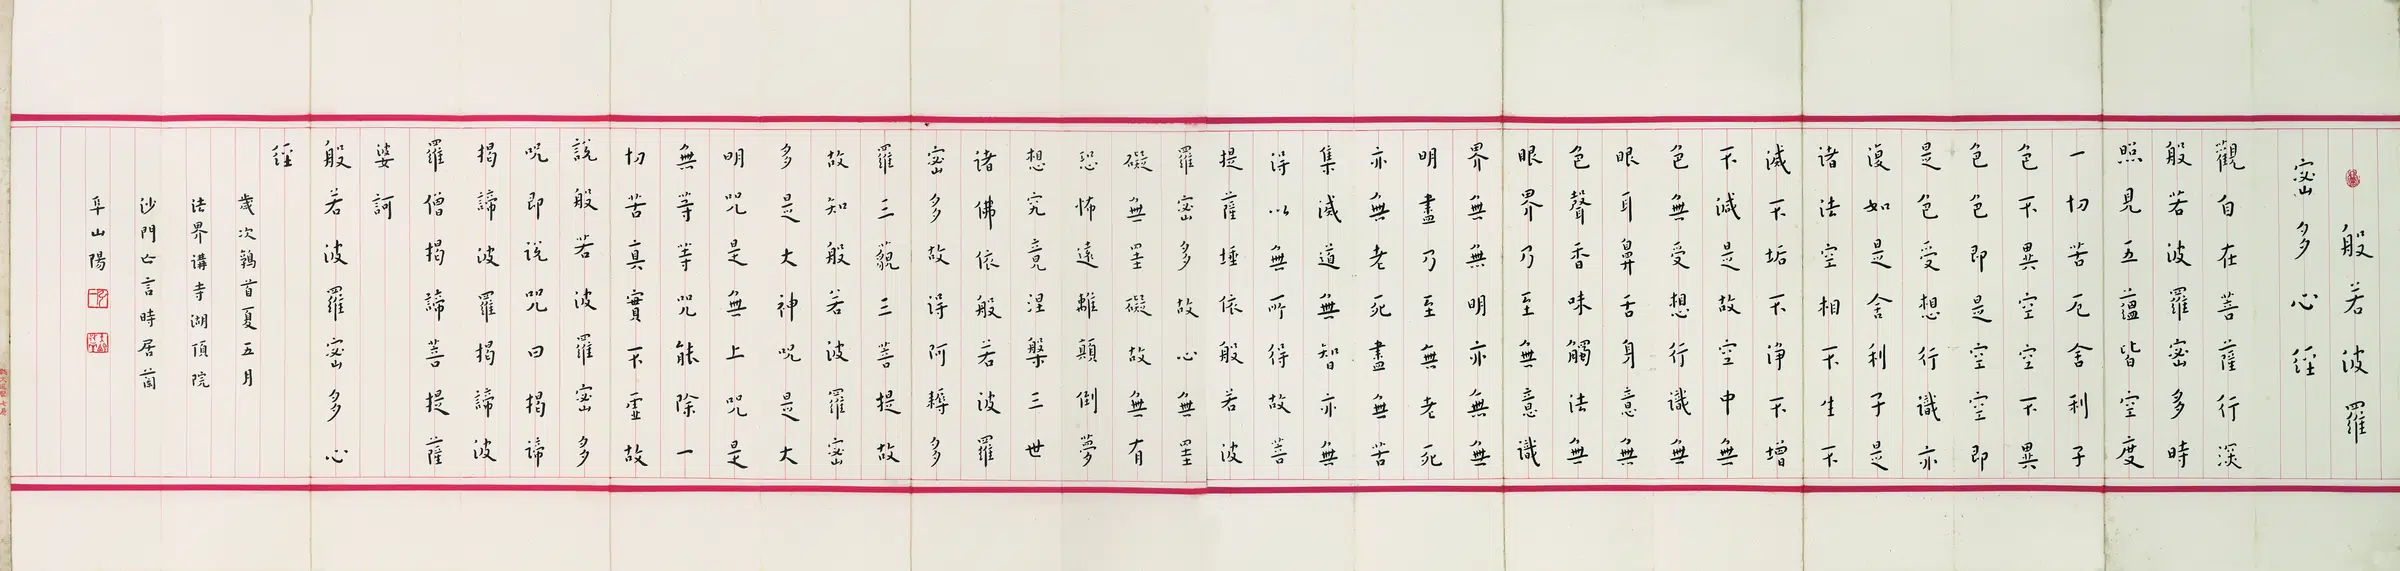 般若波羅
密多心經
觀自在菩薩行深
般若波羅密多時
照見五蘊皆空度
一切苦厄舍利子
色不異空空不異
色色即是空空即
是色受想行識亦
復如是舍利子是
諸法空相不生不
滅不垢不淨不增
不減是故空中無
色無受想行識無
眼耳鼻舌身意無
色聲香味觸法無
眼界乃至無意識
界無無明亦無無
明盡乃至無老死
亦無老死盡無苦
集滅道無智亦無
得以無所得故菩
提薩埵依般若波
羅密多故心無罣
礙無罣礙故無有
恐怖遠離顛倒夢
想究竟涅槃三世
諸佛依般若波羅
密多故得阿耨多
羅三藐三菩提故
故知般若波羅密
多是大神咒是大
明咒是無上咒是
無等等咒能除一
切苦真實不虛故
說般若波羅密多
咒即說咒曰揭諦
揭諦波羅揭諦波
羅僧揭諦菩提薩
婆訶
般若波羅密多心
經
歲次鶉首夏五月
法界講寺湖頂院
沙門亡言時居
阜山陽